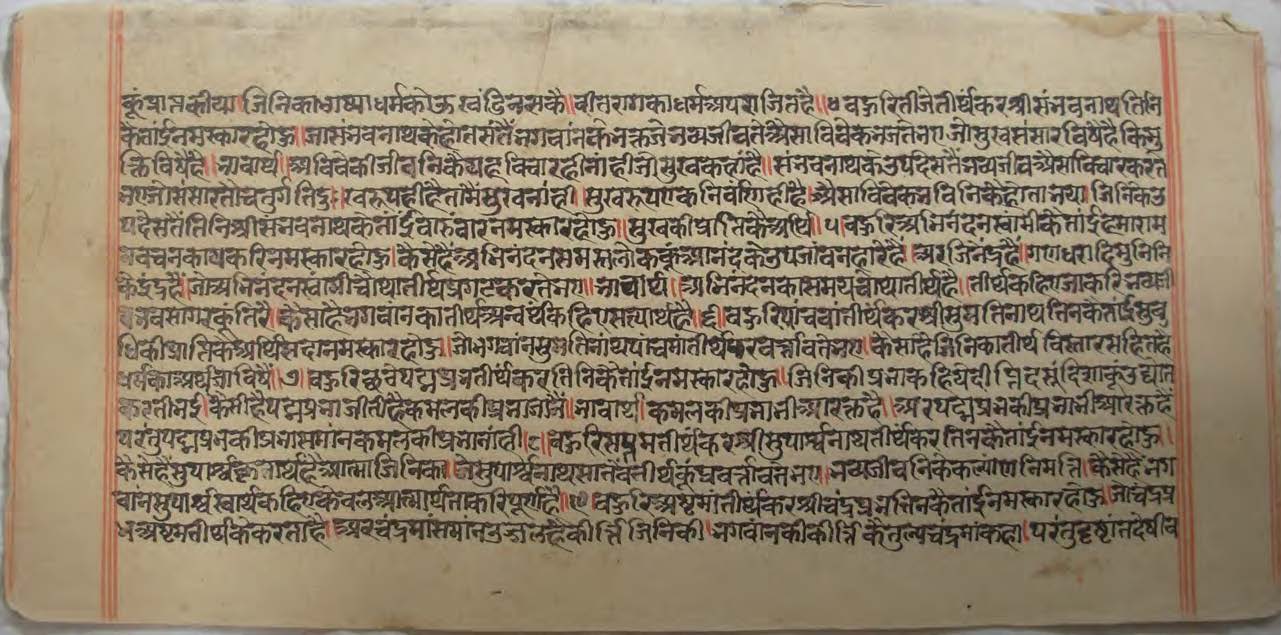 कूं प्राप्त कीया। जिनिका भाष्या धर्म कोऊ खंडि न सकै॥ वीतरागका धर्म अपराजित है॥४ बहुरि तीजे तीर्थंकर श्रीसंभवनाथ तिनि
कै तांई नमस्कार होऊ। जा संभवनाथकै होत संतैं भगवानके भक्त जे भव्यजीव ते ऐसा विवेक भजते भए जो सुख संसारविषै है कि मु
क्तिविषै है॥ भावार्थ॥ अविवेकी जीवनिकै यह विचार ही नांही जो सुख कहां है॥ संभवनाथके उपदेसतैं भव्यजीव ऐसा विचार करते
भए जो संसार तो चतुर्गति दुःखरूप ही है तामैं सुख नांही। सुखरूप एक निर्वाण ही है। ऐसा विवेक भविनिकै होता भया। जिनिके उ
पदेसतैं तिनि श्रीसंभवनाथकै तांई वारंवार नमस्कार होऊ। सुखकी प्राप्तिकै अर्थि।५। बहुरि अभिनंदनस्वामीकै तांई हमारा म
न वचन काय करि नमस्कार होऊ। कैसे हैं अभिनंदन समस्त लोककूं आनंदके उपजावनहारे हैं। अर जिनेंद्र हैं। गणधरादि मुनिनि
के इंद्र हैं। जो अभिनंदनस्वामी चौथा तीर्थ प्रगट करते भए। भावार्थ। अभिनंदनका समय चौथा तीर्थ है। तीर्थ कहिए जाकरि भव्यजी
व भवसागरकूं तिरै। कैसा है भगवानका तीर्थ अन्वर्थ कहिए सत्यार्थ है।६। बहुरि पांचवां तीर्थंकर श्रीसुमतिनाथ तिनकै तांई सुबु
धिकी प्राप्तिकै अर्थि सदा नमस्कार होऊ। जो भगवान् सुमतिनाथ पांचमां तीर्थ प्रवर्त्तावते भए। कैसा है जिनिका तीर्थ विस्तार सहित है
धर्मका अर्थ जाविषैं।७। बहुरि छठे पद्मप्रभ तीर्थंकर तिनिकै तांई नमस्कार होऊ। जिनिकी प्रभा कहिये दीप्ति दसूं दिशाकूं उद्योत
करती भई। कैसी है पद्मप्रभा जीती है कमलकी प्रभा जानैं। भावार्थ। कमलकी प्रभा भी आरक्त है। अर पद्मप्रभकी प्रभा भी आरक्त है
परंतु पद्मप्रभकी प्रभा समान कमलकी प्रभा नांही।८। बहुरि सप्तम तीर्थंकर श्रीसुपार्श्वनाथ तीर्थंकर तिनकै तांई नमस्कार होऊ।
कैसे हैं सुपार्श्व कृतार्थ है आत्मा जिनिका। जे सुपार्श्वनाथ सातवें तीर्थकूं प्रवर्त्तावते भए। भव्यजीवनिके कल्याण निमत्ति। कैसे हैं भग
वान सुपार्श्व स्वार्थ कहिए केवल आत्मार्थ ताकरि पूर्ण हैं।९० बहुरि अष्टमां तीर्थंकर श्रीचंद्रप्रभ तिनकै तांई नमस्कार होऊ। जो चंद्रप्र
भ अष्टम तीर्थके करता है। अर चंद्रमां समान उज्जल है कीर्त्ति जिनिकी। भगवानकी कीर्त्तिकै तुल्य चंद्रमां कहा। परंतु दृष्टांत देषीव